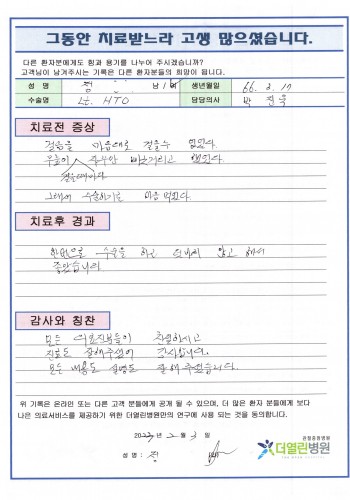 그동안 치료받느라 고생 많으셨습니다.
다른 환자분에게도 힘과 용기를 나누어 주시겠습니까?
고객님이 남겨주시는 기록은 다른 환자분들의 희망이 됩니다.
성 명 정 남/여 생년월일 66. 2. 17
수술명 Lt. HTO 담당의사 박진욱
치료전 증상
걸음을 마음대로 걸을수 없었다.
무릎이
걸을때마다.
그래서 수술하기로 마음 먹었다.
치료후 경과
수술을 하고 않고 해서
좋았습니다.
감사와 칭찬
모든 의료진분들이 친절하시고
진료도 잘해주셔서 감사합니다.
모든 내용도 설명도 잘 해주셨습니다.
위 기록은 온라인 또는 다른 고객 분들에게 공개 될 수 있으며, 더 많은 환자 분들에게 보다
나은 의료서비스를 제공하기 위한 더열린병원만의 연구에 사용 되는 것을 동의합니다.
2023년 2월 3일
성 명 : 정
관절증점병원
더열린병원